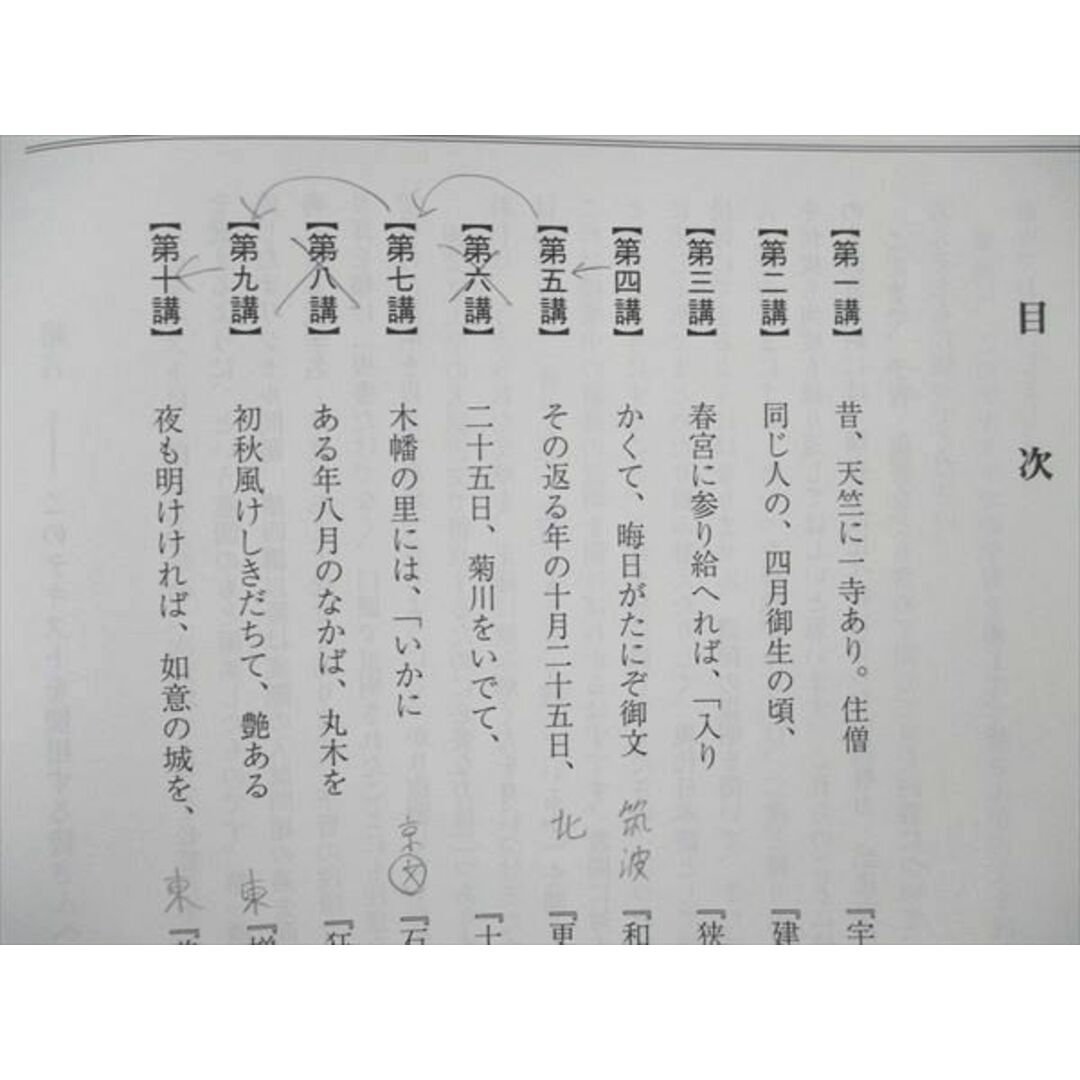 目次
【第一講】 昔、天竺に一寺あり。住僧 『宇
【第二講】 同じ人の、四月御生の頃、 『建
【第三講】 春宮に参り給へれば、「入り 『狭
【第四講】 かくて、晦日がたにぞ御文 筑波 『和
【第五講】 その返る年の十月二十五日、 北 『更
【第六講】 二十五日、菊川をいでて、 『十
【第七講】 木幡の里には、「いかに 京文 『石
【第八講】 ある年八月のなかば、丸木を 『狂
【第九講】 初秋風けしきだちて、艶ある 東 『増
【第十講】 夜も明けければ、如意の城を、 東